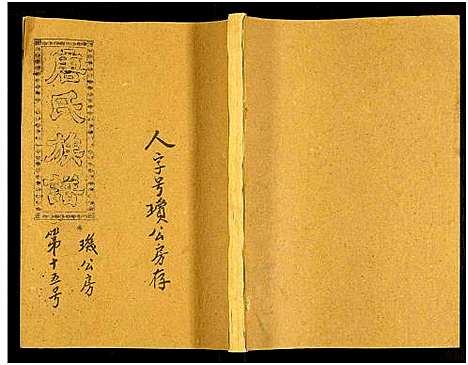 唐氏族譜
人字号璜公房存
璣公房
第十五号